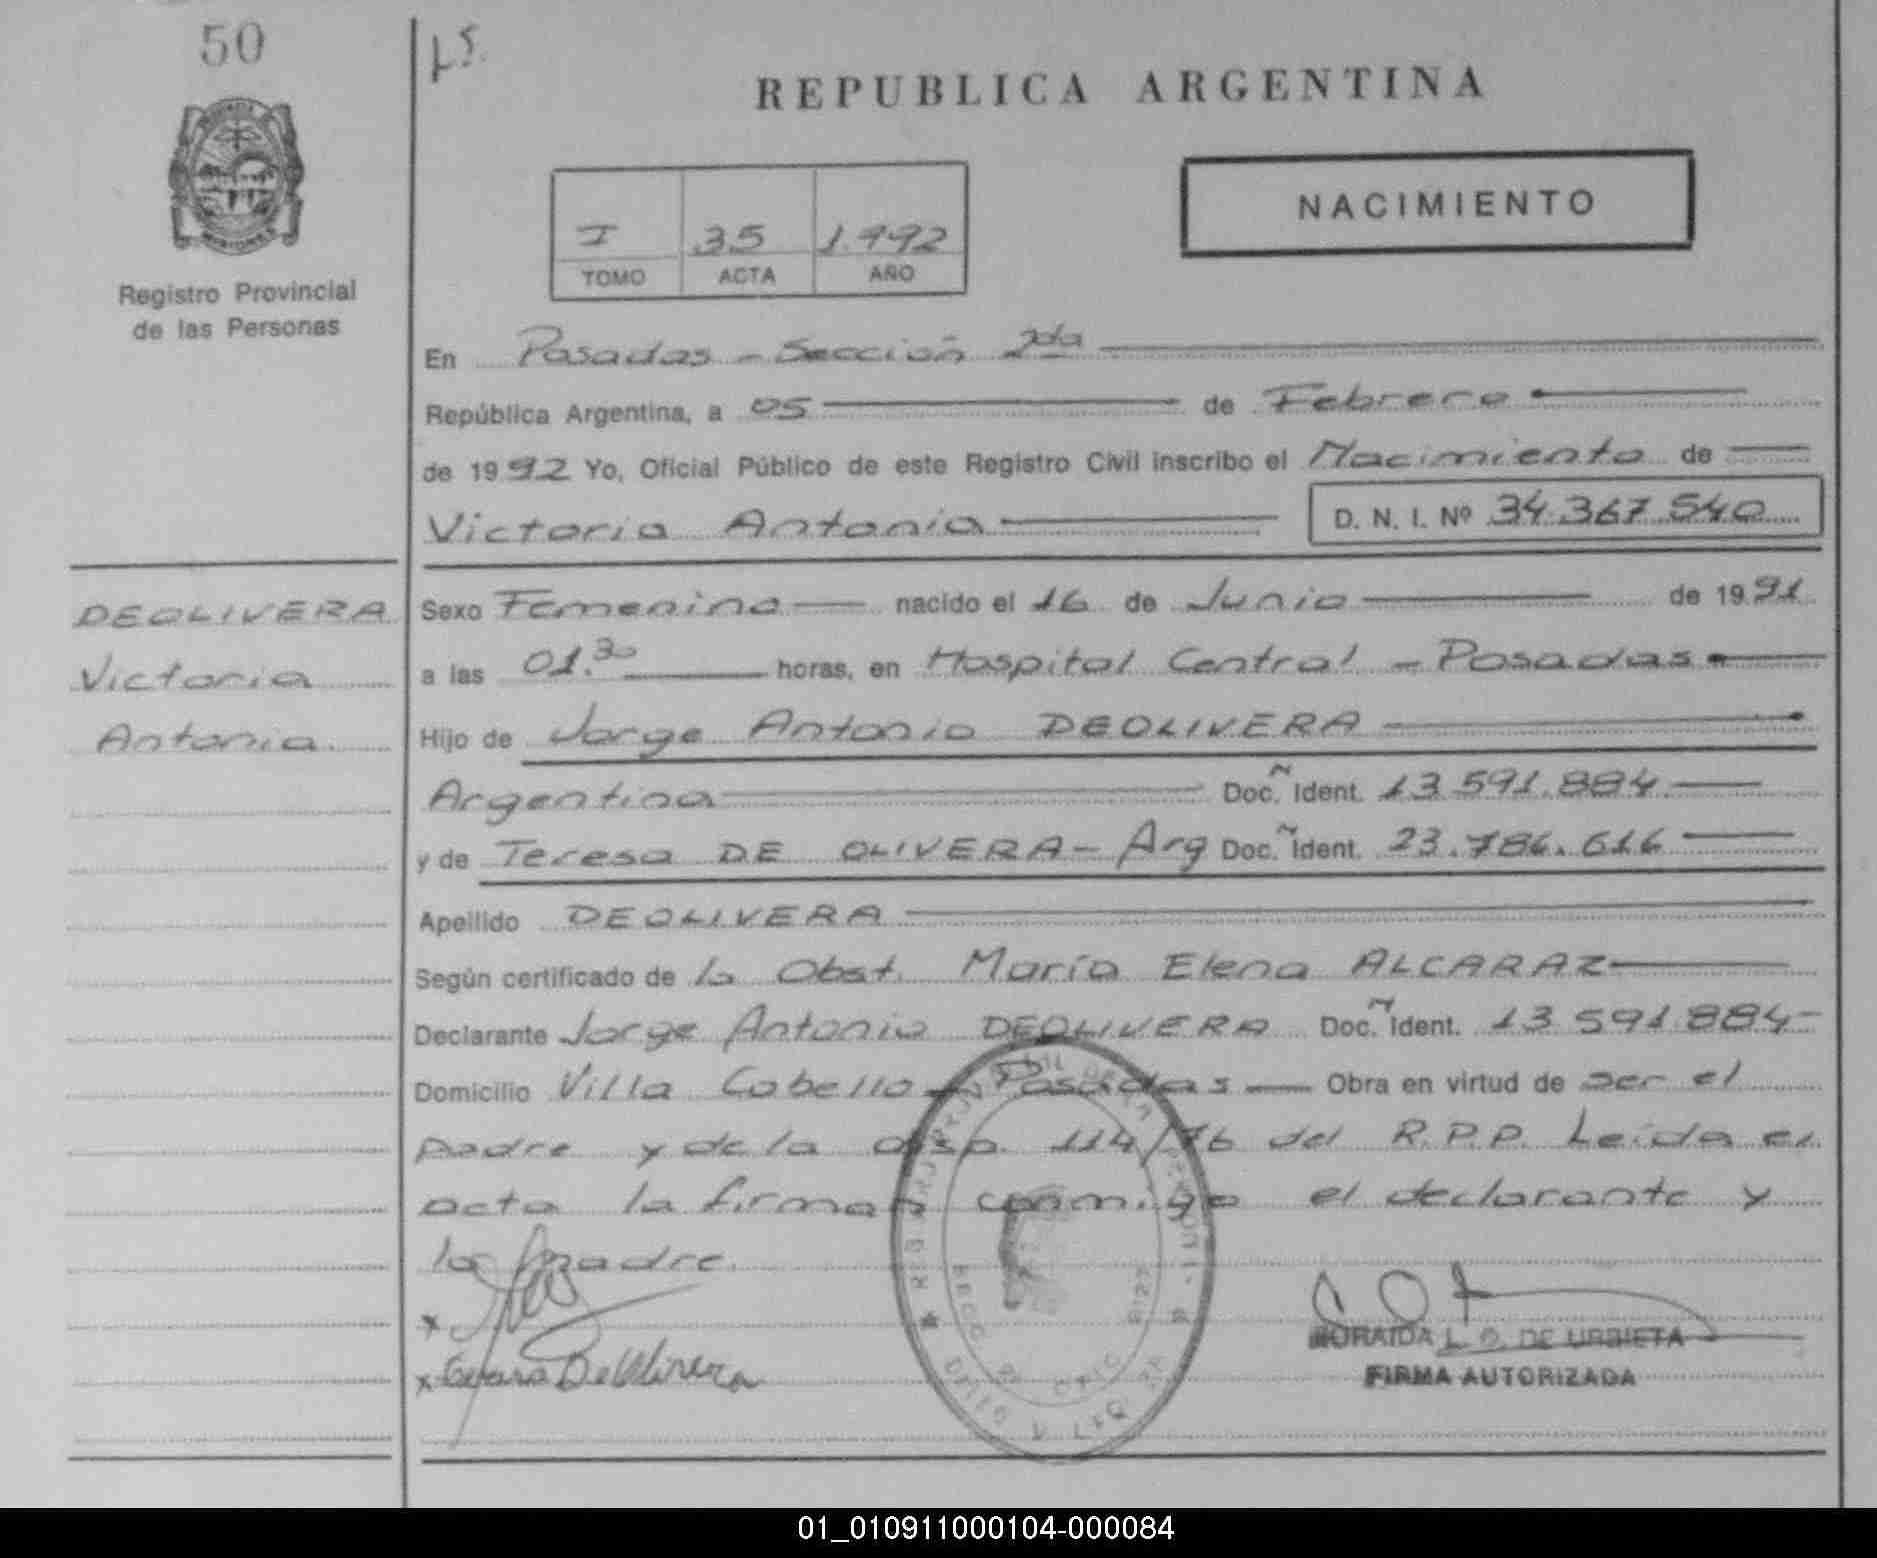 50
Registro Provincial
de las Personas
DEOLIVERA
Victoria
Antonia.
REPUBLICA ARGENTINA
NACIMIENTO
I 35 1.992
TOMO ACTA AÑO
En Posadas - Sección 2da
República Argentina, a 05 de Febrero
de 1992 Yo, Oficial Público de este Registro Civil inscribo el Nacimiento de
Victoria Antonia D. N. I. Nº 34.367.540
Sexo Femenino nacido el 16 de Junio de 1991
a las 01.30 horas, en Hospital Central - Posadas
Hijo de Jorge Antonio DEOLIVERA
Argentina Doc. Ident. 13.591.884
y de Teresa DE OLIVERA - Arg Doc. Ident. 23.786.616
Apellido DEOLIVERA
Según certificado de la Obst. María Elena ALCARAZ
Declarante Jorge Antonio DEOLIVERA Doc. Ident. 13.591.884
Domicilio Villa Cabello - Posadas Obra en virtud de ser el
padre y de la disp. 114/76 del R.P.P. Leída el
acta la firman conmigo el declarante y
la madre.
x
x Teresa De Olivera
L. O. DE URBIETA
FIRMA AUTORIZADA
01_010911000104-000084